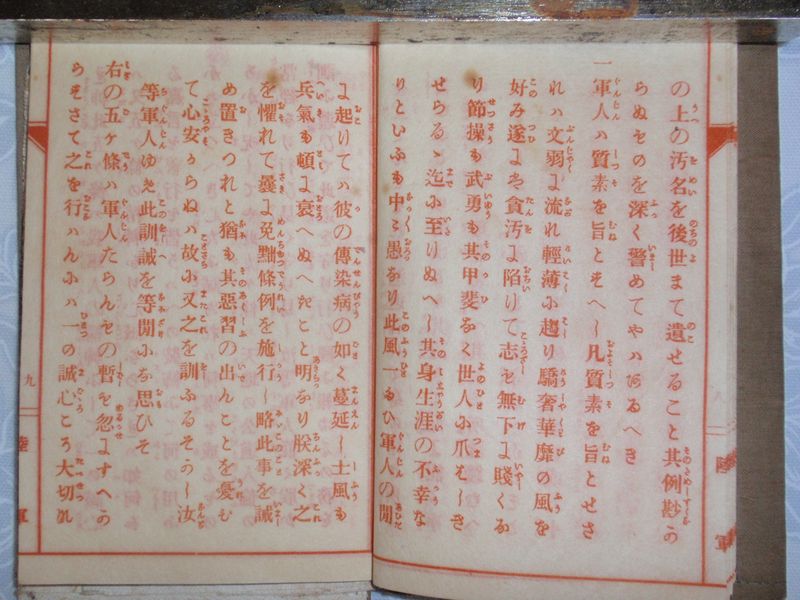 の上の汚名を後世まて遺せること其例尠か
らぬものを深く警めてやハあるへき
一軍人ハ質素を旨とすへし凡質素を旨とせさ
れハ文弱に流れ輕薄に趨り驕奢華靡の風を
好み遂にハ貪汚に陷りて志も無下に賤くな
り節操も武勇も其甲斐なく世人に爪はしき
せらるゝ迄に至りぬへし其身生涯の不幸な
りといふも中々愚なり此風一たひ軍人の間
に起りてハ彼の傳染病の如く蔓延し士風も
兵氣も頓に衰へぬへきこと明なり朕深く之
を懼れて曩に免黜條例を施行し略此事を誡
め置きつれと猶も其惡習の出んことを憂ひ
て心安からねハ故に又之を訓ふるそかし汝
等軍人ゆめ此訓誡を等閒にな思ひそ
右の五ヶ條ハ軍人たらんもの暫も忽にすへか
らすさて之を行ハんにハ一の誠心こそ大切な
八
陸軍
九
陸軍